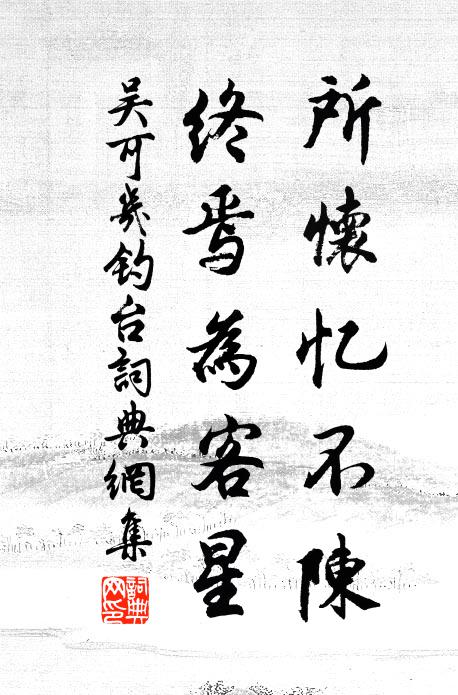 所懷忆不陳
終焉為客星
吴可幾釣台詞典網集
詞典